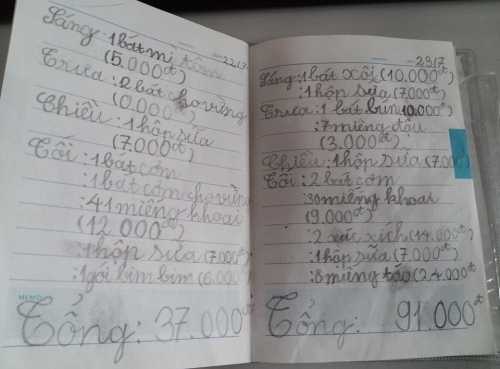 22/7
Sáng: 1 bát mì tôm
(5.000đ)
Trưa: 2 bát cháo vừng
(0.000đ)
Chiều: 1 hộp sữa
(7.000đ)
Tối: 1 bát cơm
: 1 bát cơm cho vừng
: 41 miếng khoai
(12 000đ)
: 1 hộp sữa (7.000đ)
: 1 gói bim bim (6.000
MEMO
Tổng: 37.000đ
23/7
Sáng: 1 bát xôi (10.000đ)
: 1 hộp sữa (7.000đ)
Trưa: 1 bát bún 10.000đ)
: 7 miếng đậu
(3.000đ)
Chiều: 1 hộp sữa (7.000đ)
Tối: 2 bát cơm
: 30 miếng khoai
(9.000đ)
: 2 xúc xích (14.000đ)
: 1 hộp sữa (7.000đ)
: 8 miếng táo (24.000đ
Tổng: 91.000đ